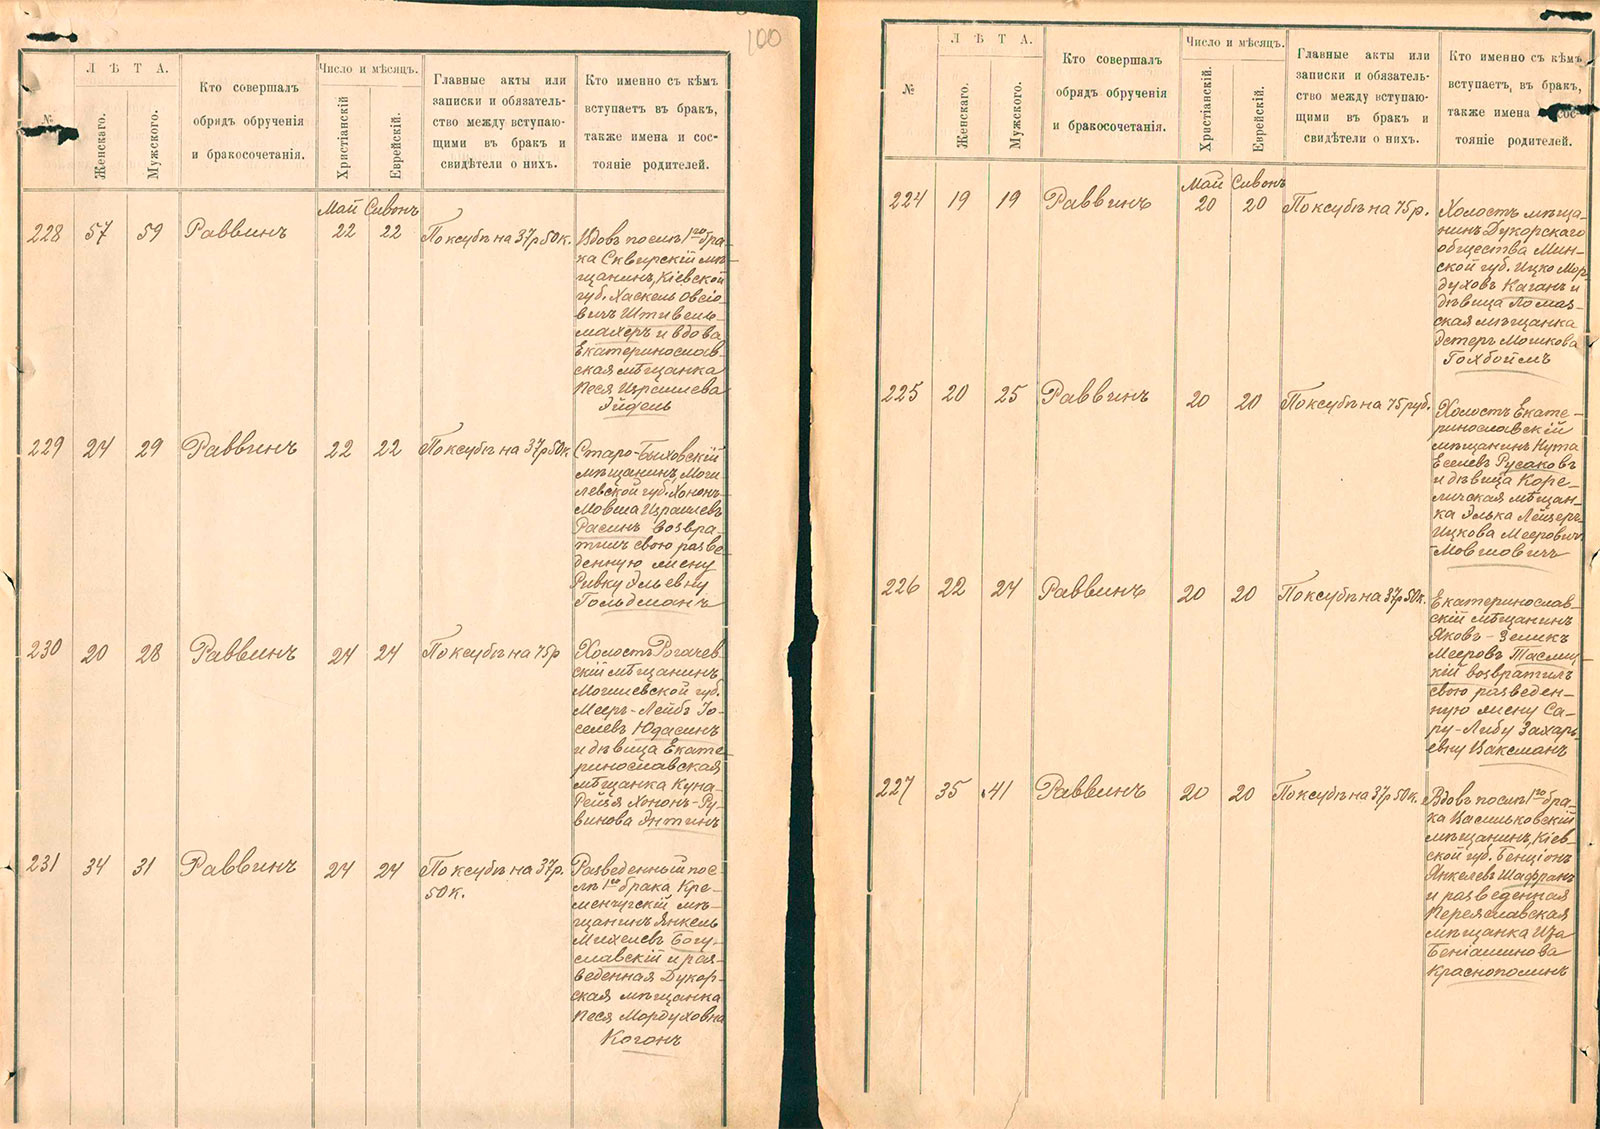 100
№
ЛѢТА.
Женскаго.
Мужского.
Кто совершалъ
обрядъ обрученія
и бракосочетанія.
Число и мѣсяцъ.
Христіанскій
Еврейскій.
Главные акты или
записки и обязатель-
ство между вступаю-
щими въ бракъ и
свидѣтели о нихъ.
Кто именно съ кѣмъ
вступаетъ въ бракъ,
также имена и сос-
тояніе родителей.
Май Сивонъ
228 57 59 Раввинъ 22 22 По ксубѣ на 37р 50к.
Вдовъ послѣ 1го бра-
ка Сквирскій мѣ-
щанинъ, Кіевской
губ. Хаскель Овсіо-
вичъ Штивель-
махеръ и вдова
Екатеринослав-
ская мѣщанка
Песя Израилева
Эйдель
229 24 29 Раввинъ 22 22 По ксубѣ на 37р 50к.
Старо-Быховскій
мѣщанинъ, Моги-
левской губ. Хононъ-
Мовша Израилевъ
Расинъ возвра-
тилъ свою разве-
денную жену
Ривку Эльевну
Гольдманъ
230 20 28 Раввинъ 24 24 По ксубѣ на 75р
Холостъ Рогачев-
скій мѣщанинъ
Могилевской губ.
Мееръ-Лейбъ Іо-
селевъ Юдасинъ
и дѣвица Екате-
ринославская
мѣщанка Куна-
Рейзя Хононъ-Ру-
винова Энтинъ
231 34 31 Раввинъ 24 24 По ксубѣ на 37р.
50к.
Разведенный пос-
лѣ 1го брака Кре-
менчугскій мѣ-
щанинъ Янкель
Михелевъ Богу-
славскій и раз-
веденная Дукор-
ская мѣщанка
Песя Мордуховна
Когонъ
№
ЛѢТА.
Женскаго.
Мужского.
Кто совершалъ
обрядъ обрученія
и бракосочетанія.
Число и мѣсяцъ.
Христіанскій.
Еврейскій.
Главные акты или
записки и обязатель-
ство между вступаю-
щими въ бракъ и
свидѣтели о нихъ.
Кто именно съ кѣмъ
вступаетъ въ бракъ,
также имена и сос-
тояніе родителей.
Май Сивонъ
224 19 19 Раввинъ 20 20 По ксубѣ на 75р.
Холостъ мѣща-
нинъ Дукорскаго
общества Мин-
ской губ. Ицко Мор-
духовъ Каганъ и
дѣвица Ломаз-
ская мѣщанка
Эстеръ Мошкова
Гохбоймъ
225 20 25 Раввинъ 20 20 По ксубѣ на 75руб.
Холостъ Екате-
ринославскій
мѣщанинъ Нута
Еселевъ Русаковъ
и дѣвица Коре-
личская мѣщан-
ка Элька Лейзеръ-
Ицкова Мееровичъ
Мовшовичъ
226 22 24 Раввинъ 20 20 По ксубѣ на 37р 50к.
Екатеринослав-
скій мѣщанинъ
Яковъ-Зеликъ
Мееровъ Таслиц-
кій возвратилъ
свою разведен-
ную жену Са-
ру-Либу Захарь-
евну Ваксманъ
227 35 41 Раввинъ 20 20 По ксубѣ на 37р 50к.
Вдовъ послѣ 1го бра-
ка Васильковскій
мѣщанинъ, Кіев-
ской губ. Бенціонъ
Янкелевъ Шафранъ
и разведенная
Переяславская
мѣщанка Иза
Беніаминова
Краснополинъ